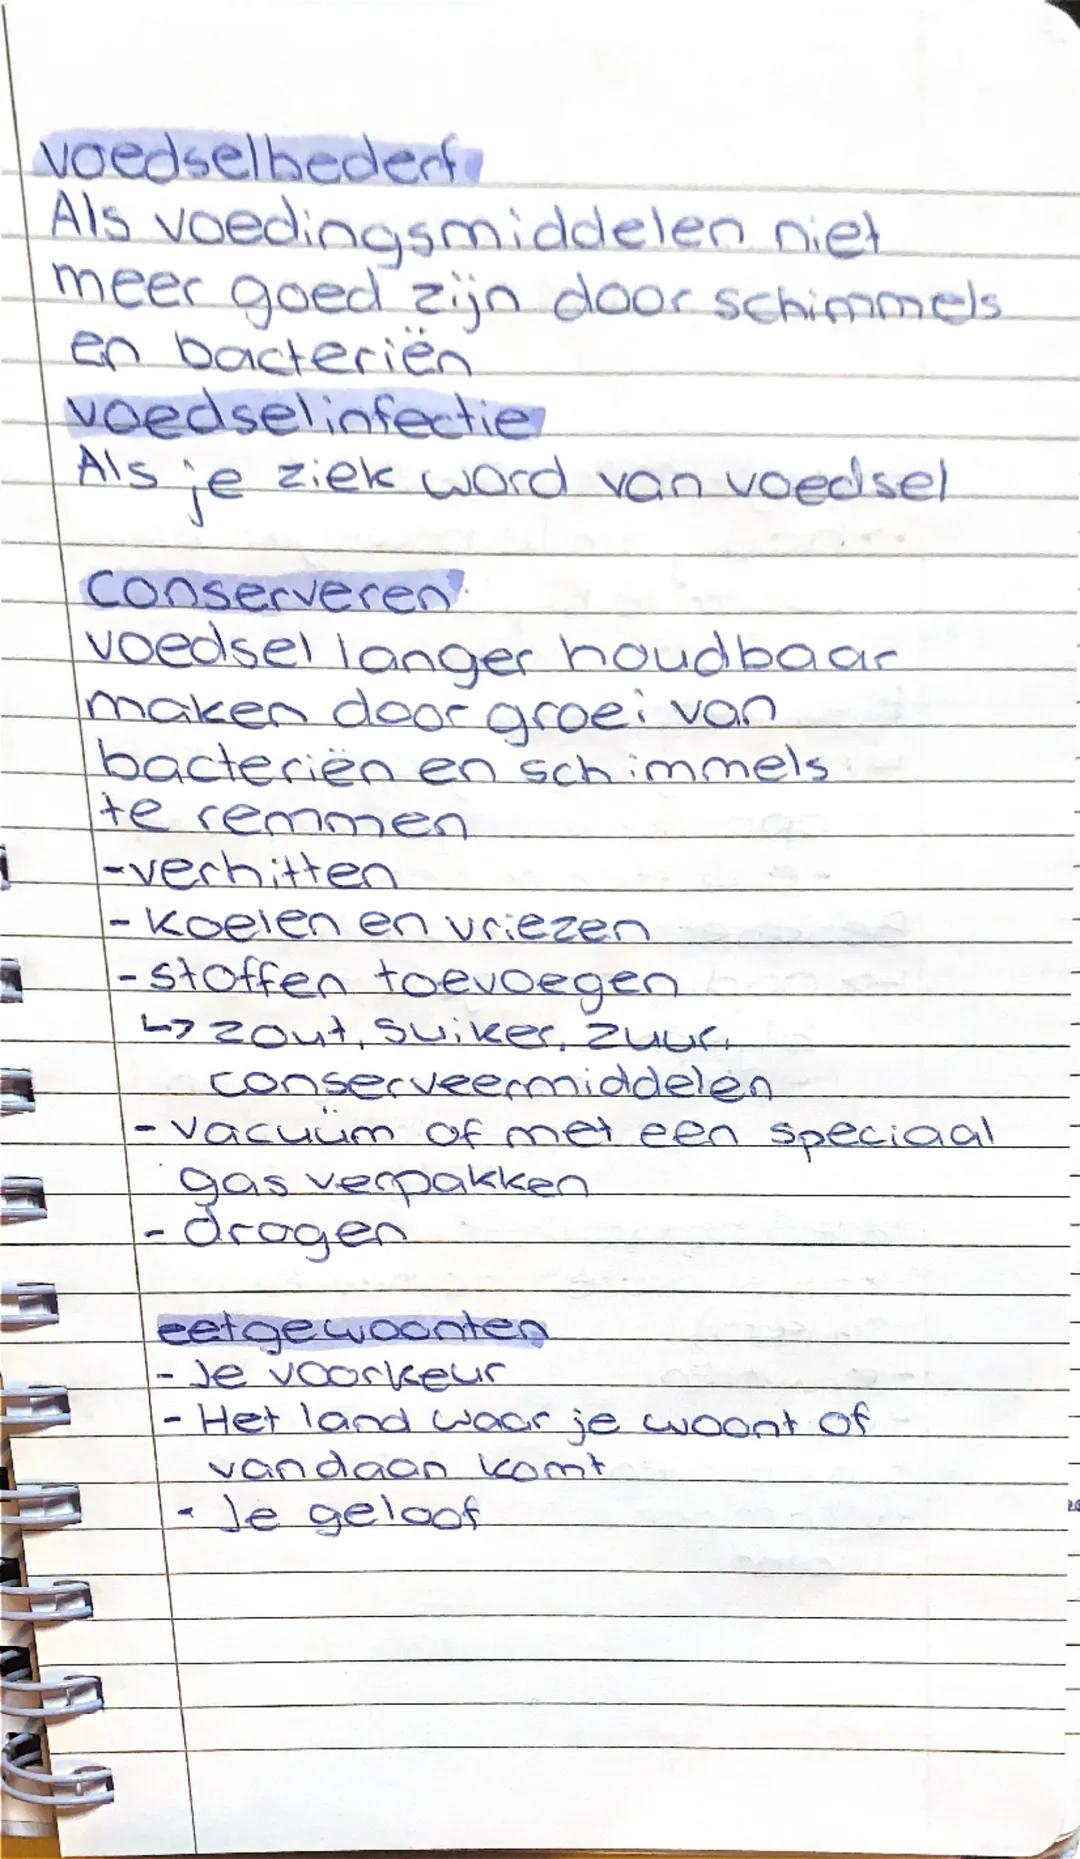 voedselbederf
Als voedingsmiddelen niet
meer goed zijn door schimmels
en bacteriën
voedselinfectie
Als je ziek word van voedsel
conserveren
voedsel langer houdbaar
maken door groei van
bacteriën en schimmels
te remmen
-verhitten
- koelen en vriezen
- stoffen toevoegen
↳ zout, suiker, zuur,
conserveermiddelen
- vacuüm of met een speciaal
gas verpakken
- drogen
eetgewoonten
- Je voorkeur
- Het land waar je woont of
vandaan komt
- Je geloof